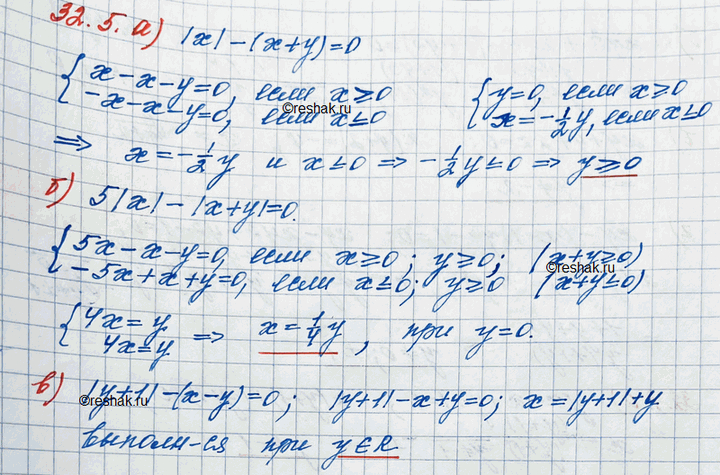 32.5. а) |x| - (x+y) = 0
{ x - x - y = 0, если x ≥ 0
-x - x - y = 0, если x ≤ 0
{ y = 0, если x ≥ 0
x = -1/2 y, если x ≤ 0
©reshak.ru
⇒ x = -1/2 y и x ≤ 0 ⇒ -1/2 y ≤ 0 ⇒ y ≥ 0
б) 5|x| - |x+y| = 0.
{ 5x - x - y = 0, если x ≥ 0; y ≥ 0; (x+y ≥ 0)
-5x + x + y = 0, если x ≤ 0; y ≥ 0 (x+y ≤ 0)
©reshak.ru
{ 4x = y
4x = y ⇒ x = 1/4 y, при y = 0.
в) |y+1| - (x-y) = 0; |y+1| - x + y = 0; x = |y+1| + y
©reshak.ru
выполн-ся при y ∈ R